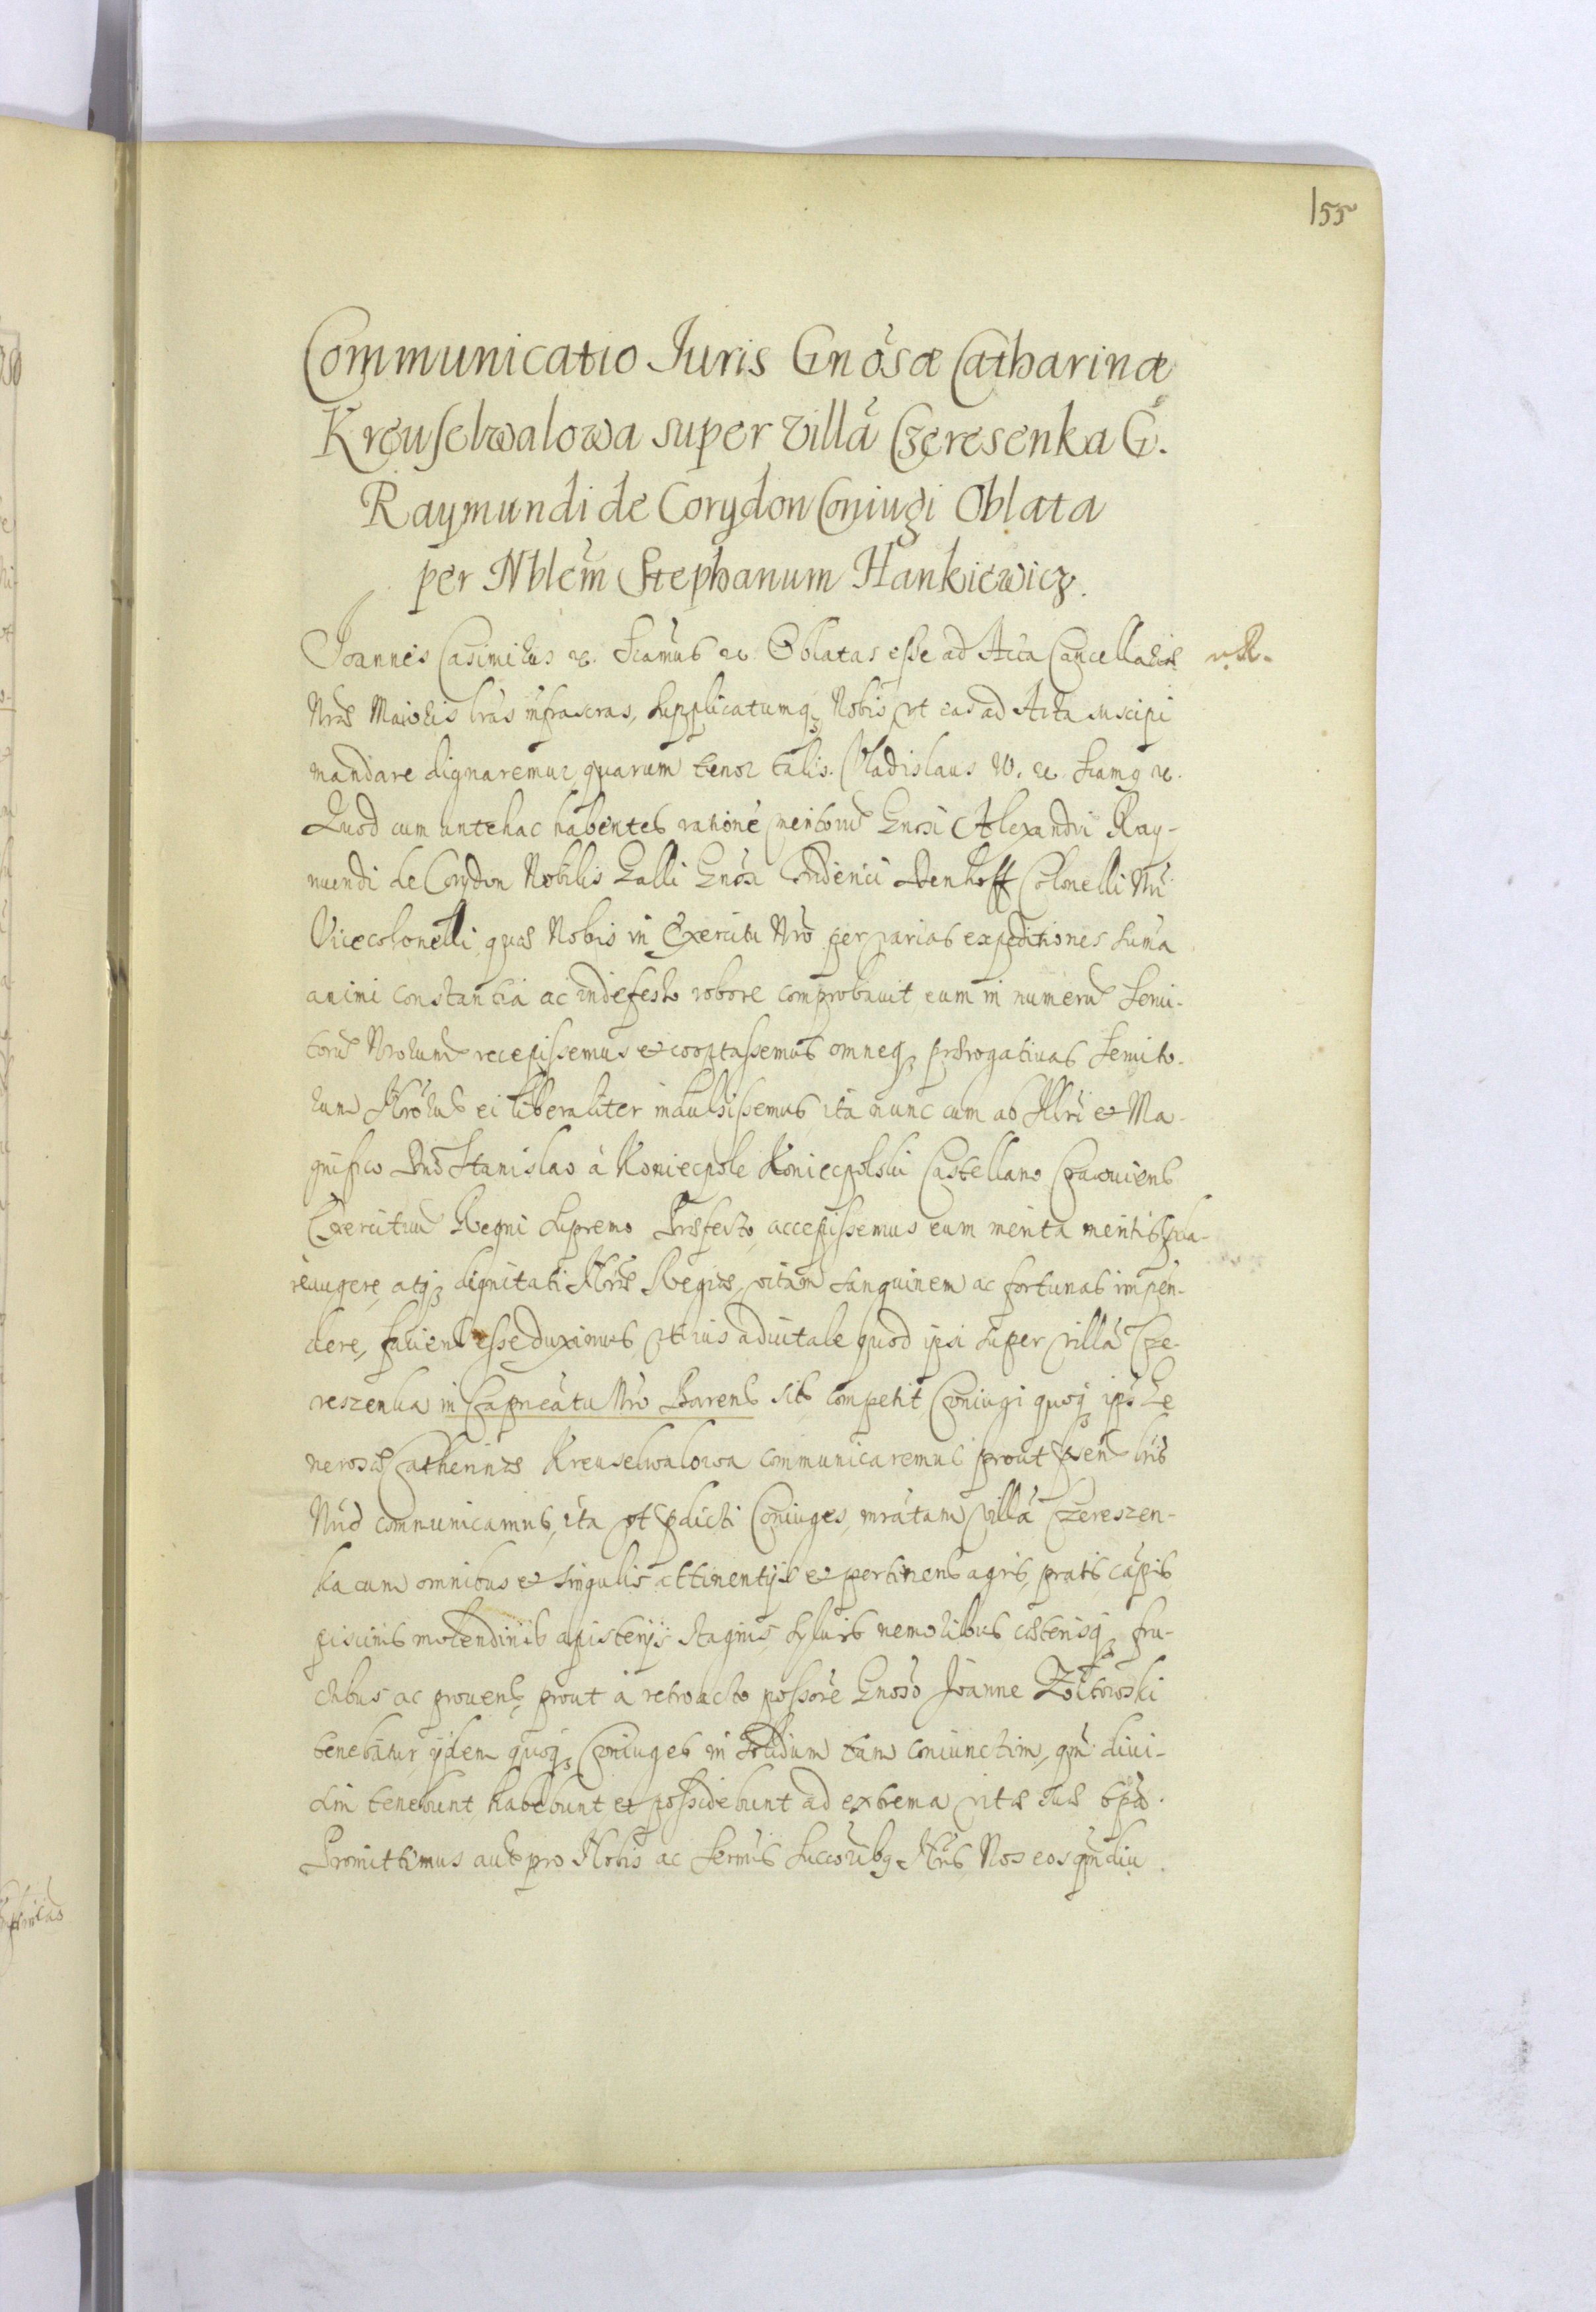 155
Communicatio Juris Gnõsæ Catharinæ
Kreuselwalowa super villã Czeresenka G.
Raymundi de Corydon Coniugi Oblata
per Nblem̃ Stephanum Hankiewicz.
Joannes Casimirus &. Scamus & Oblatas esse ad Acta Cancellariæ
Nræ Maioris lras infrascras, supplicatumq; Nobis vt eas ad Acta suscipi
mandare dignaremur, quarum tenor talis. Vladislaus IV. &. Scamq &.
Quod cum antehac habentes rationẽ meritorũ Gnosi Alexandri Ray-
mundi de Corydon Nobilis Galli Gnosi Friderici Denhoff Colonelli Nri
Vicecolonelli, quæ Nobis in Exercitu Nro per varias expeditiones sum̃a
animi constantia ac indefesso robore comprobavit, eum in numerũ Servi-
torũ Nrorum recepissemus et cooptassemus omneq; prærogativas Servito-
rum Nrorum ei liberaliter indulsissemus ita nunc cum ab Illri et Ma-
gnifico Dno Stanislao à Koniecpole Koniecpolski Castellano Cracoviens
Exercituũ Regni Supremo Præfecto, accepissemus eum merita meritis
augere, atq; dignitati Nræ Regiæ, vitam sanguinem ac fortunas impen-
dere, faciend esse duximus, vt ius aduitale quod ipsi super villã Cze-
reszenka in Capneãtu Nro Barens sit competit, Coniugi quoq; ipsẽ Ge
nerosæ Catherinæ Kreuselwalowa communicaremus prout psent lris
Nris communicamus, ita vt pdicti Coniuges, mrãtam villã Czereszen-
ka cum omnibus et singulis attinentijs et pertinens agris, pratis, cãpis
piscinis molendinis stagnis, syluis nemoribus cæterisq; fru-
ctibus ac provens, prout à retroacto possore Gnoso Joanne Zołtowski
tenebatur, ijdem quoq; Coniuges in solidum tam coniunctim, qm̃ divi-
sim tenebunt, habebunt et possidebunt ad extrema vitæ suæ tpã.
Promittimus aut pro Nobis ac Sermis Succoribq Nris Nos eos qmdiu